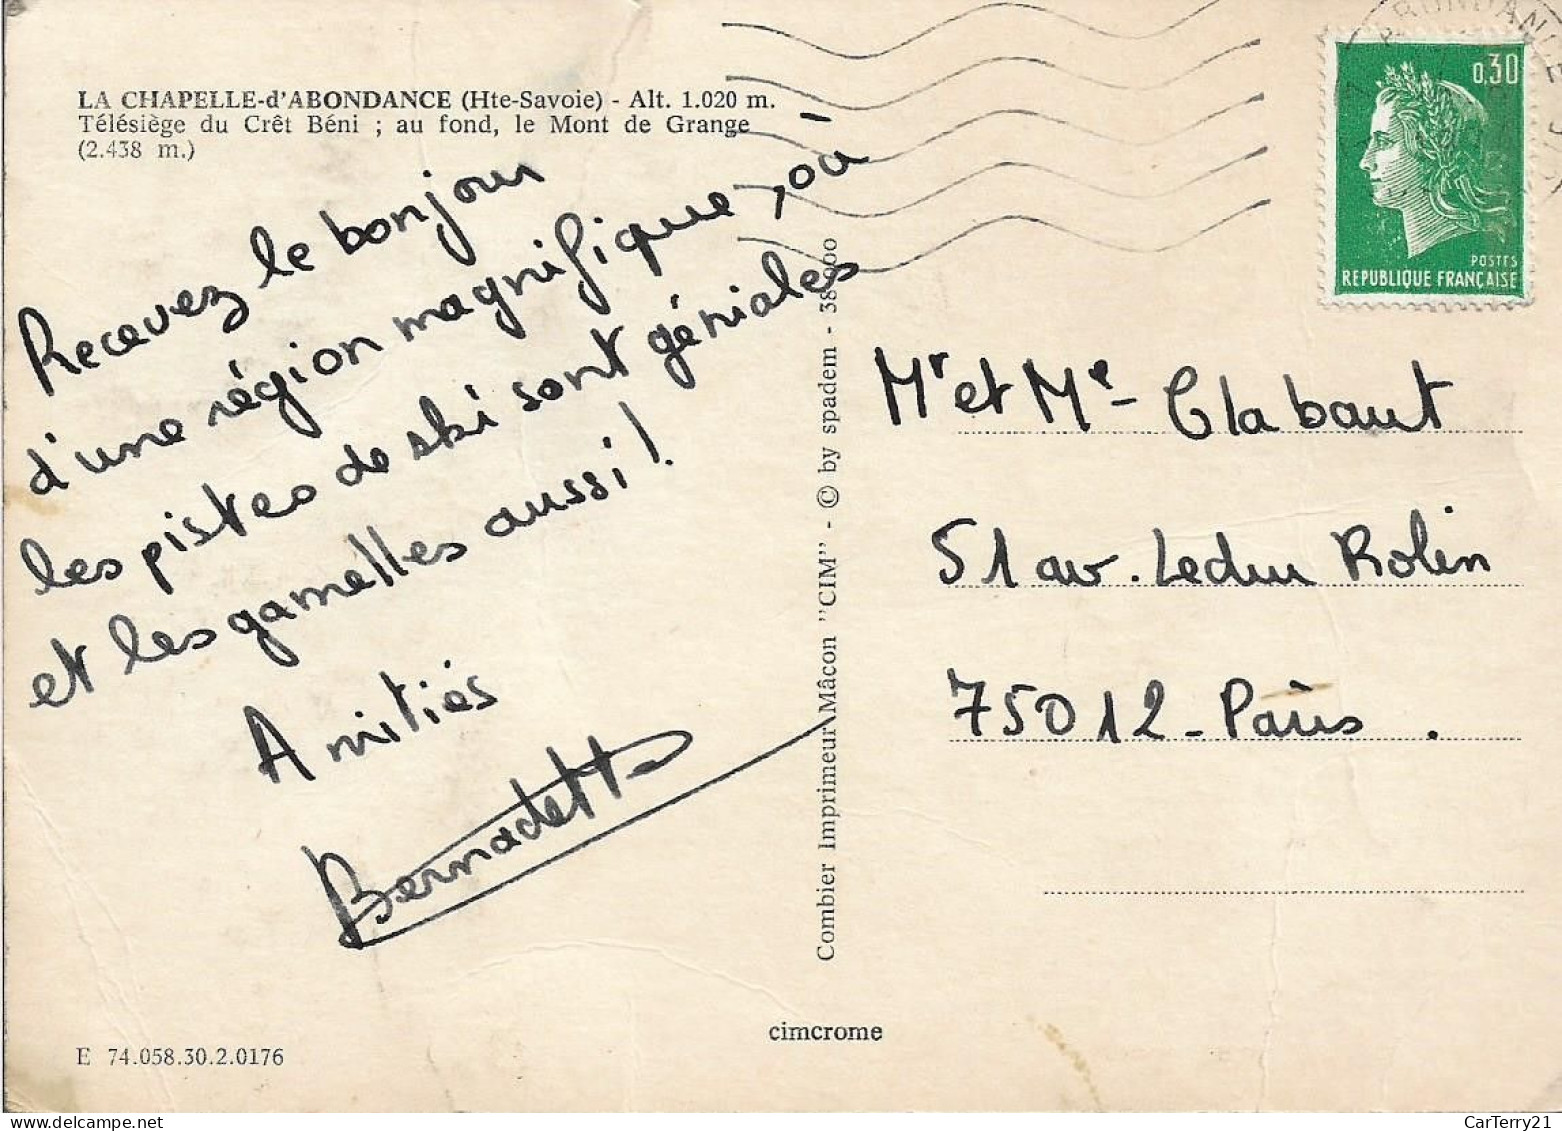 LA CHAPELLE-d'ABONDANCE (Hte-Savoie) - Alt. 1.020 m.
Télésiège du Crêt Béni ; au fond, le Mont de Grange
(2.438 m.)
Recevez le bonjour
d'une région magnifique, où
les pistes de ski sont géniales
et les gamelles aussi !
Amitiés
Bernadette
E 74.058.30.2.0176
cimcrome
Combier Imprimeur Mâcon "CIM" - © by spadem -
0,30
POSTES
REPUBLIQUE FRANÇAISE
Mr et Me - Clabaut
51 av. Ledru Rolin
75012 - Paris.
CarTerry21